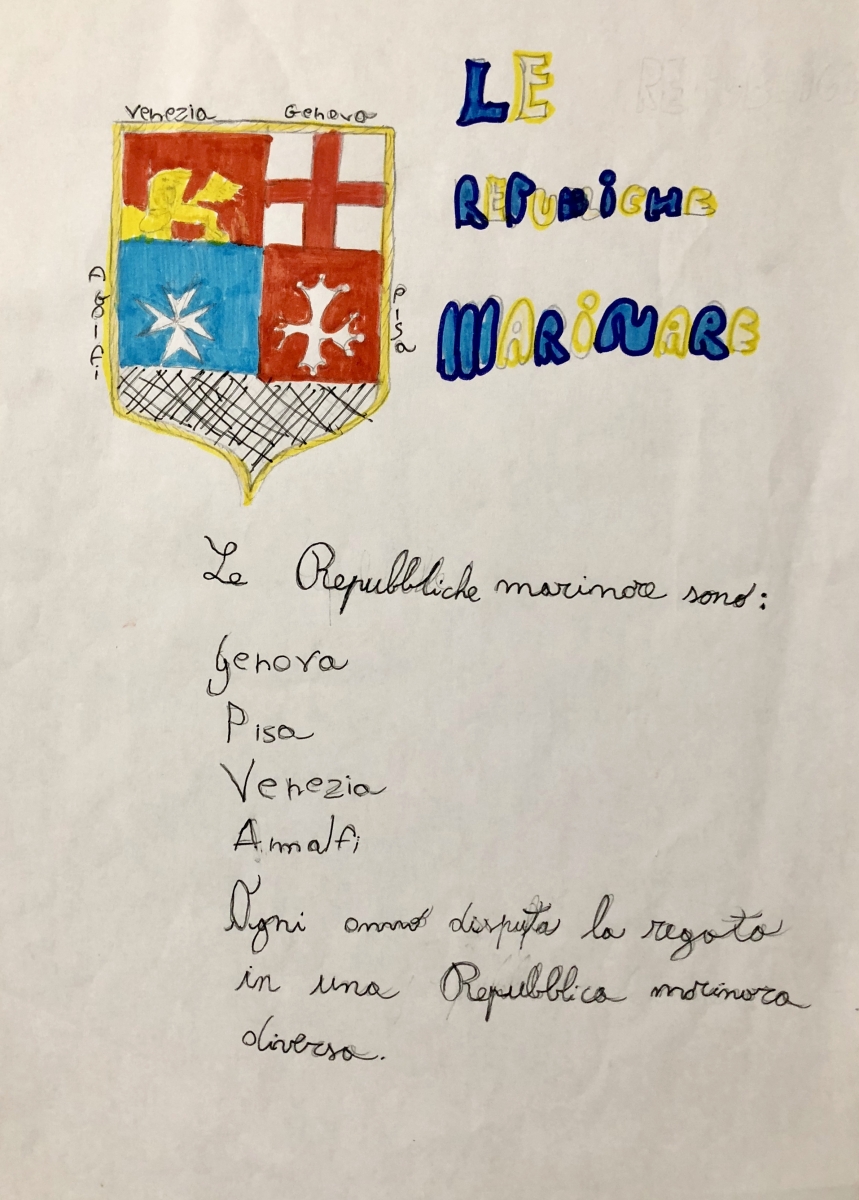 Venezia Genova
LE
REPUBLICHE
MARINARE
Pisa
Le Repubbliche marinare sono:
Genova
Pisa
Venezia
Amalfi
Ogni anno disputa la regata
in una Repubblica marinara
diversa.